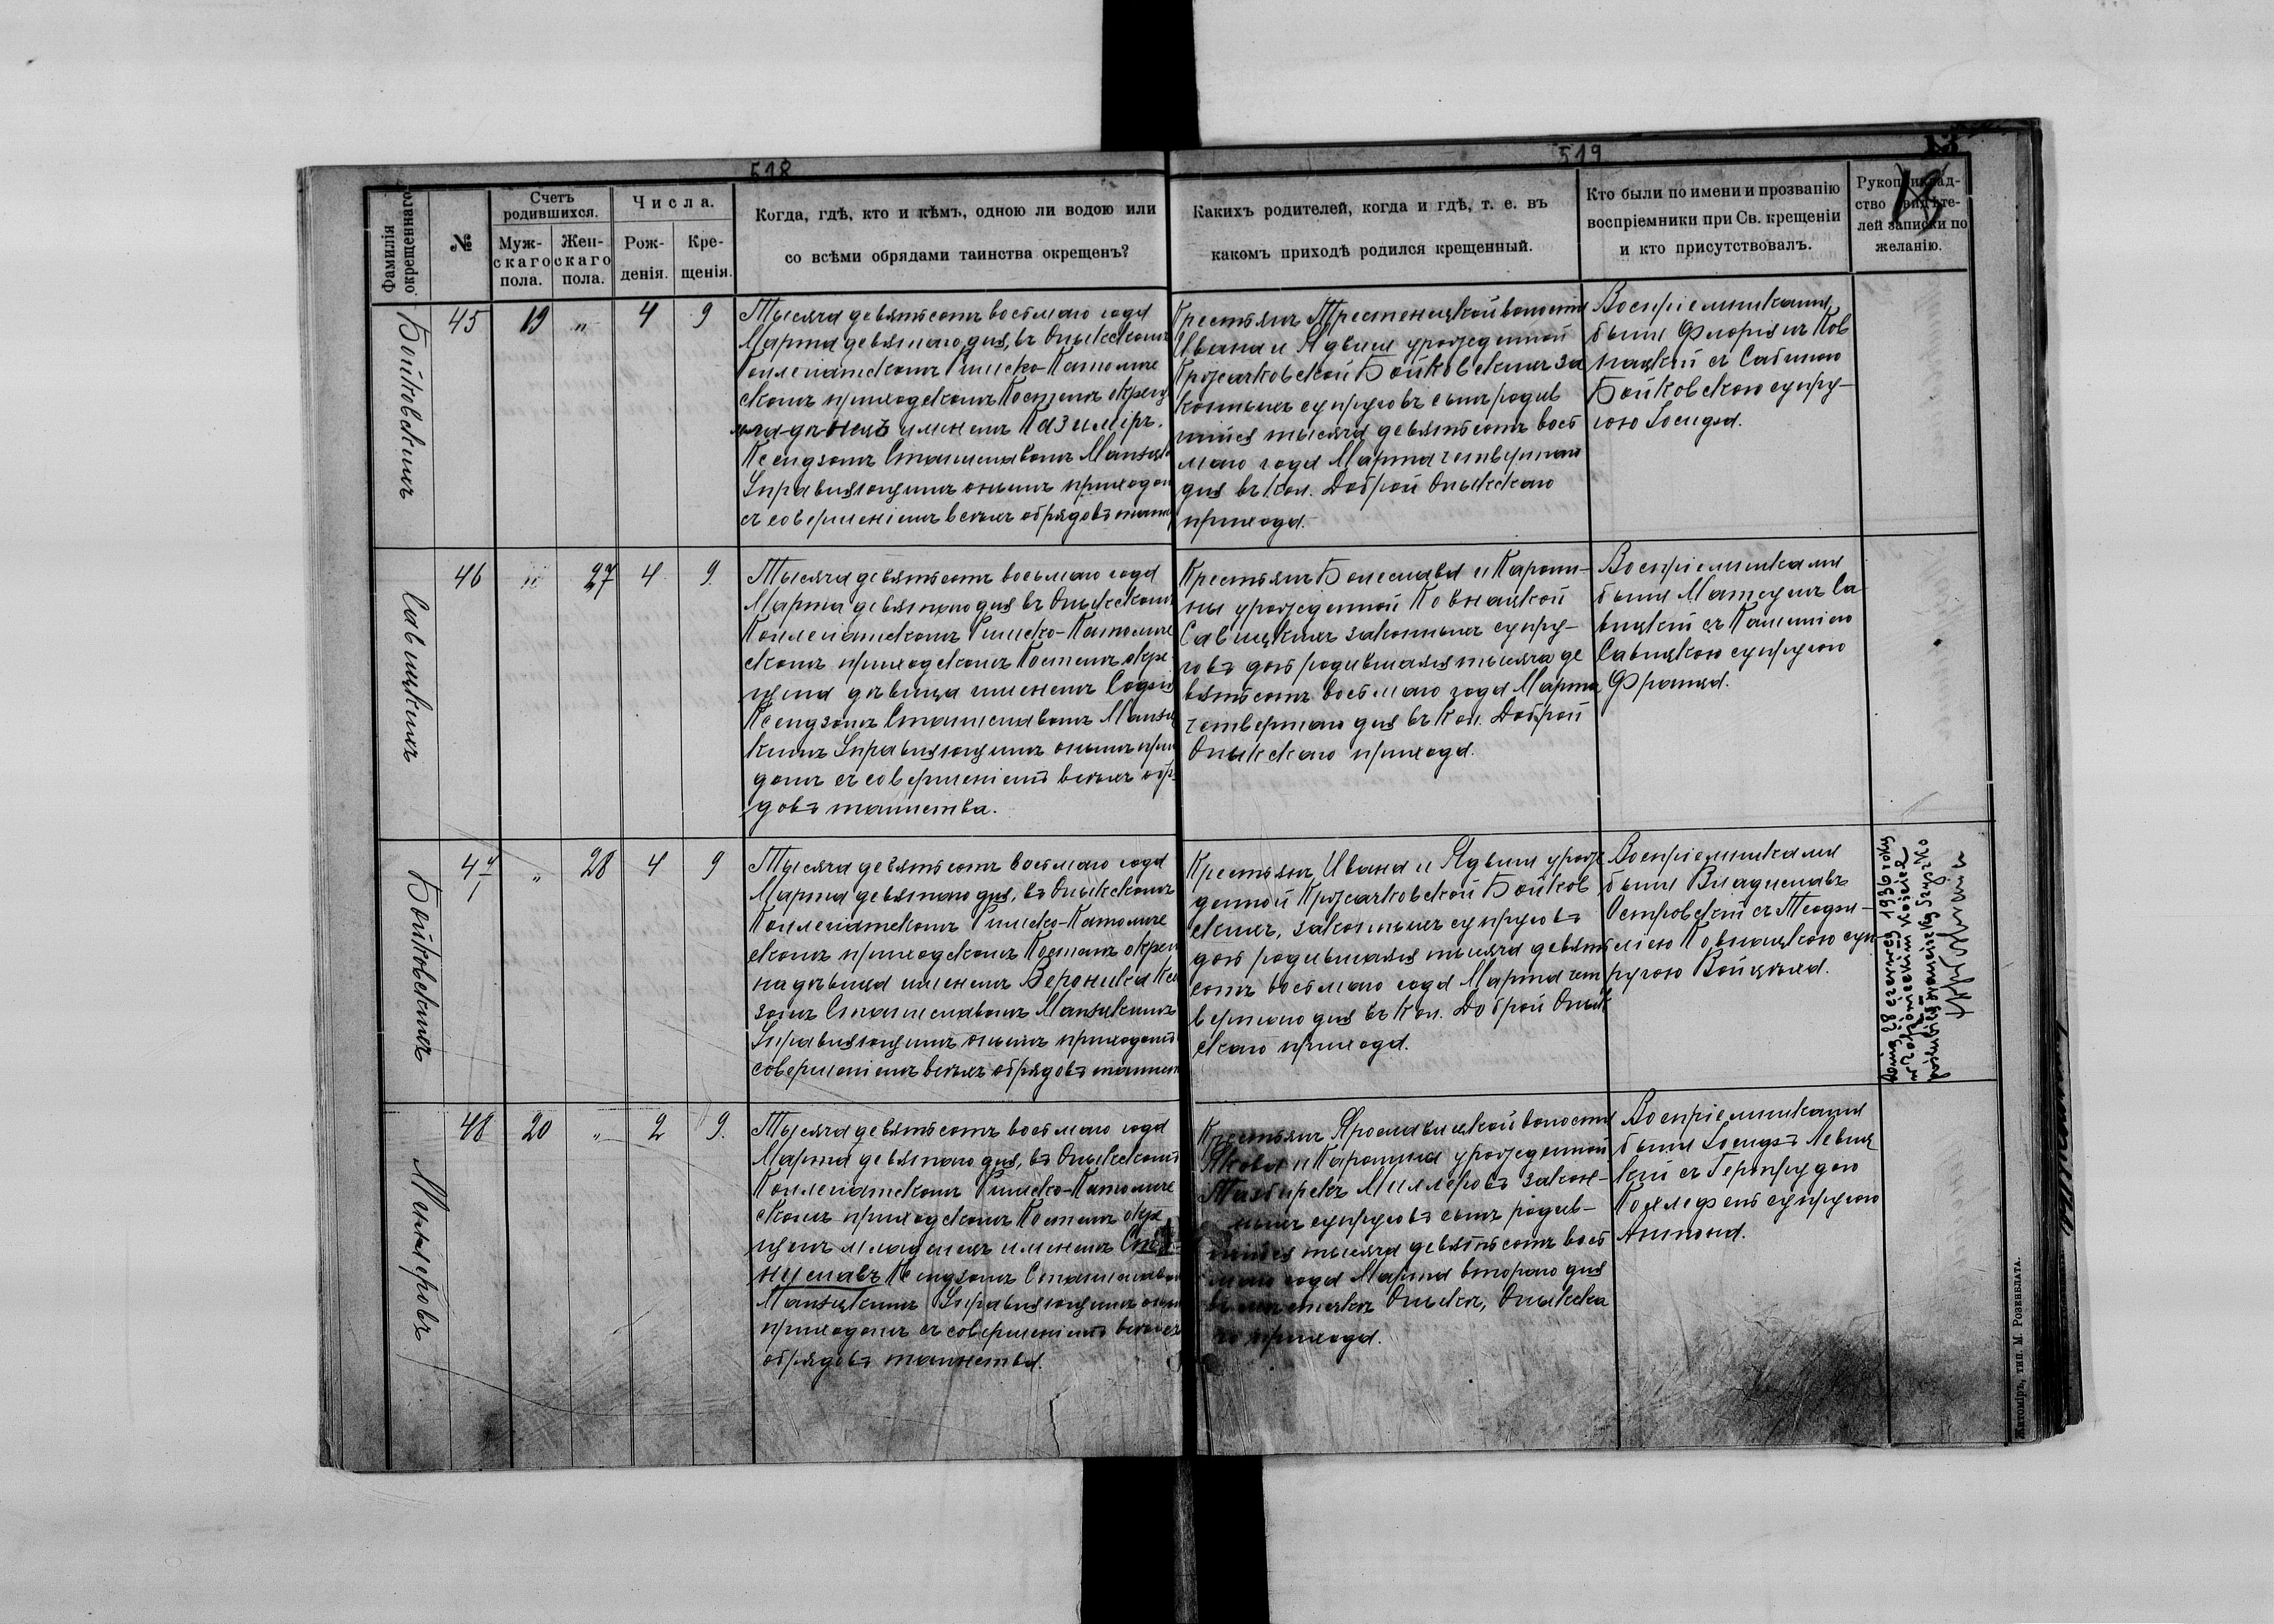 518
Фамилія окрещеннаго.
№
Счетъ родившихся.
Мужскаго пола.
Женскаго пола.
Числа.
Рожденія.
Крещенія.
Когда, гдѣ, кто и кѣмъ, одною ли водою или
со всѣми обрядами таинства окрещенъ?
519
Какихъ родителей, когда и гдѣ, т. е. въ
какомъ приходѣ родился крещенный.
Кто были по имени и прозванію
воспріемники при Св. крещеніи
и кто присутствовалъ.
Рукоприклад-
ство свидѣте-
лей записки по
желанію.
13
Бойковскихъ
45 19 „ 4 9
Тысяча девятьсотъ восьмаго года
Марта девятаго дня, въ Олыкскомъ
Коллегіатскомъ Римско-Католиче
скомъ приходскомъ Костелѣ окрещ
именемъ Казиміръ.
Ксендзомъ Станиславомъ
Управляющимъ онымъ приходом
съ совершеніемъ всѣхъ обрядовъ таин
Крестьянъ Тростенецкой волости
Ивана и Ядвиги урожденной
Крожачковской Бойковскихъ за
конныхъ супруговъ сынъ родив
шійся тысяча девятьсотъ вось
маго года Марта четвертаго
дня въ кол. Доброй Олыкскаго
прихода.
Воспріемниками
были Флоріянъ Ков
нацкій съ Сабиною
Бойковскою супру-
гою Іосифа.
Савицкихъ
46 „ 27 4 9
Тысяча девятьсотъ восьмаго года
Марта девятаго дня въ Олыкскомъ
Коллегіатскомъ Римско-Католиче
скомъ приходскомъ Костелѣ окре-
щена дѣвица именемъ Софія
Ксендзомъ Станиславомъ
кимъ Управляющимъ онымъ прихо
домъ съ совершеніемъ всѣхъ обря
довъ таинства.
Крестьянъ Болеслава и Кароли-
ны урожденной Ковнацкой
Савицкихъ законныхъ супру-
говъ дочь родившаяся тысяча де
вятьсотъ восьмаго года Марта
четвертаго дня въ кол. Доброй
Олыкскаго прихода.
Воспріемниками
были Матеушъ Са
вицкій съ
Савицкою супругою
Франца.
Бойковскихъ
47 „ 28 4 9
Тысяча девятьсотъ восьмаго года
Марта девятаго дня, въ Олыкскомъ
Коллегіатскомъ Римско-Католиче
скомъ приходскомъ Костелѣ окреще
на дѣвица именемъ Вероника Ксен
зомъ Станиславомъ
Управляющимъ онымъ приходомъ
совершеніемъ всѣхъ обрядовъ таинст
Крестьянъ Ивана и Ядвиги урож
денной Крожачковской Бойков
скихъ, законныхъ супруговъ
дочь родившаяся тысяча девять
сотъ восьмаго года Марта чет
вертаго дня въ кол. Доброй Олык
скаго прихода.
Воспріемниками
были Владиславъ
Островскій съ Теофи-
ліею Ковнацкою суп-
ругою Войцѣха.
Dnia 28 czerwca 1936 roku
w kościele
48 20 „ 2 9.
Тысяча девятьсотъ восьмаго года
Марта девятаго дня, въ Олыкскомъ
Коллегіатскомъ Римско-Католиче
скомъ приходскомъ Костелѣ окре
щенъ младенецъ именемъ Ста-
ниславъ Ксендзомъ Станиславом
Управляющимъ оным
приходомъ съ совершеніемъ всѣхъ
обрядовъ таинства.
Крестьянъ Ярославицкой волости
Якова и Каролины урожденной
Миллеровъ закон-
ныхъ супруговъ сынъ родив-
шійся тысяча девятьсотъ вось
маго года Марта втораго дня
въ мѣстечкѣ Олыкѣ, Олыкска
го прихода.
Воспріемниками
были Іосифъ Левиц
кій съ Гертрудою
супругою
Антона.
Житоміръ, тип. М. Розенблата.